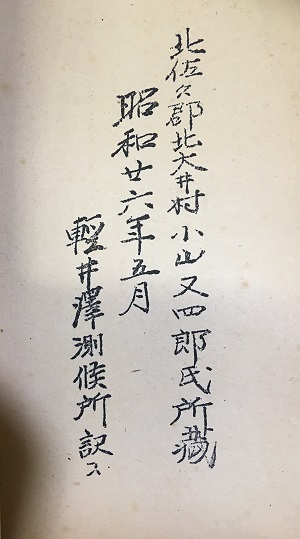 北佐久郡北大井村小山又四郎氏所蔵
昭和廿六年五月
輕井澤測候所訳ス